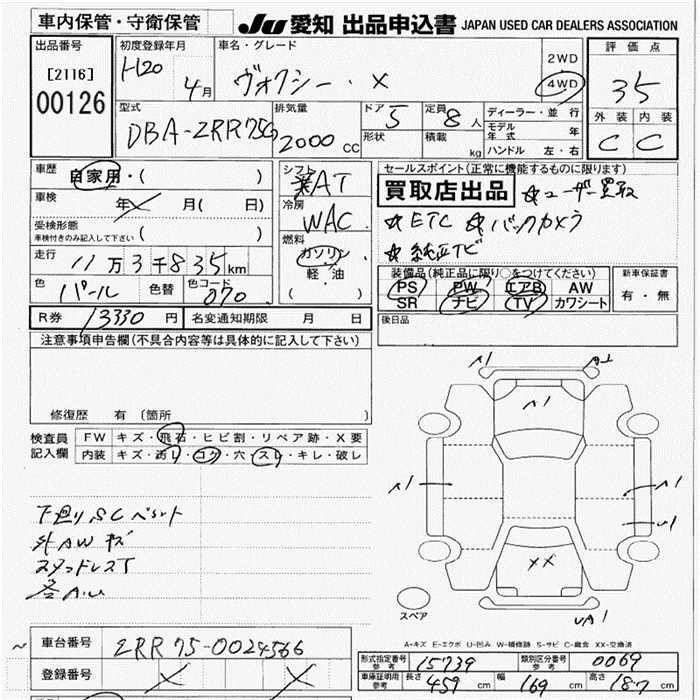 車内保管・守衛保管
JU 愛知 出品申込書 JAPAN USED CAR DEALERS ASSOCIATION
出品番号
[2116]
00126
初度登録年月
H20 4月
車名・グレード
ヴォクシー・X
2WD
4WD
評価点
3.5
外装 内装
C C
型式
DBA-ZRR75G
排気量
2000 CC
ドア 5
形状
定員 8人
積載 kg
ディーラー・並行
モデル年式 年
ハンドル 左・右
車歴
自家用・( )
車検
年 月( 日)
受検形態
車検付きのみ記入して下さい ( )
走行
11万3千835km
色 パール 色替 色コード 070
シフト
AT
冷房
WAC
燃料
ガソリン
軽・油
( )
セールスポイント(正常に機能するものに限ります)
買取店出品 ☆ユーザー買取
☆ETC ☆バックカメラ
☆純正TV
装備品(純正品に限り○をつけてください)
PS PW エアB AW
SR ナビ TV カワシート
新車保証書
有・無
R券 13330円 名変通知期限 月 日
後日品
注意事項申告欄(不具合内容等は具体的に記入して下さい)
修復歴 有 〔箇所 〕
検査員
記入欄
FW キズ・飛石・ヒビ割・リペア跡・X要
内装 キズ・汚レ・コゲ・穴・スレ・キレ・破レ
下廻り、SCペイント
外AWキズ
スタッドレスT
各A.U
A1
A1
A1
A1
U1
XX
UA1
スペア
A-キズ E-エクボ U-凹み W-補修跡 S-サビ C-腐食 XX-交換済
車台番号 ZRR75-0024566
登録番号 X X
形式指定番号
参考 15739
類別区分番号
参考 0069
車庫証明用
参考 長さ 459 cm 幅 169 cm 高さ 187 cm